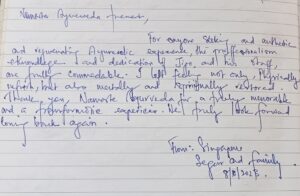 Namaste Ayurveda
For anyone seeking and authentic
and rejuvenating Ayurvedic experience, the proffessionalism
and dedication of and his staff,
are trully commedable. I left feeling not only Physically
refresh, but also mentally and spiritually restored.
Thank you, Namaste Ayurveda for a truly memorable
and a transformative experience. We truly look forward
coming back again.
From: Singapore
and family